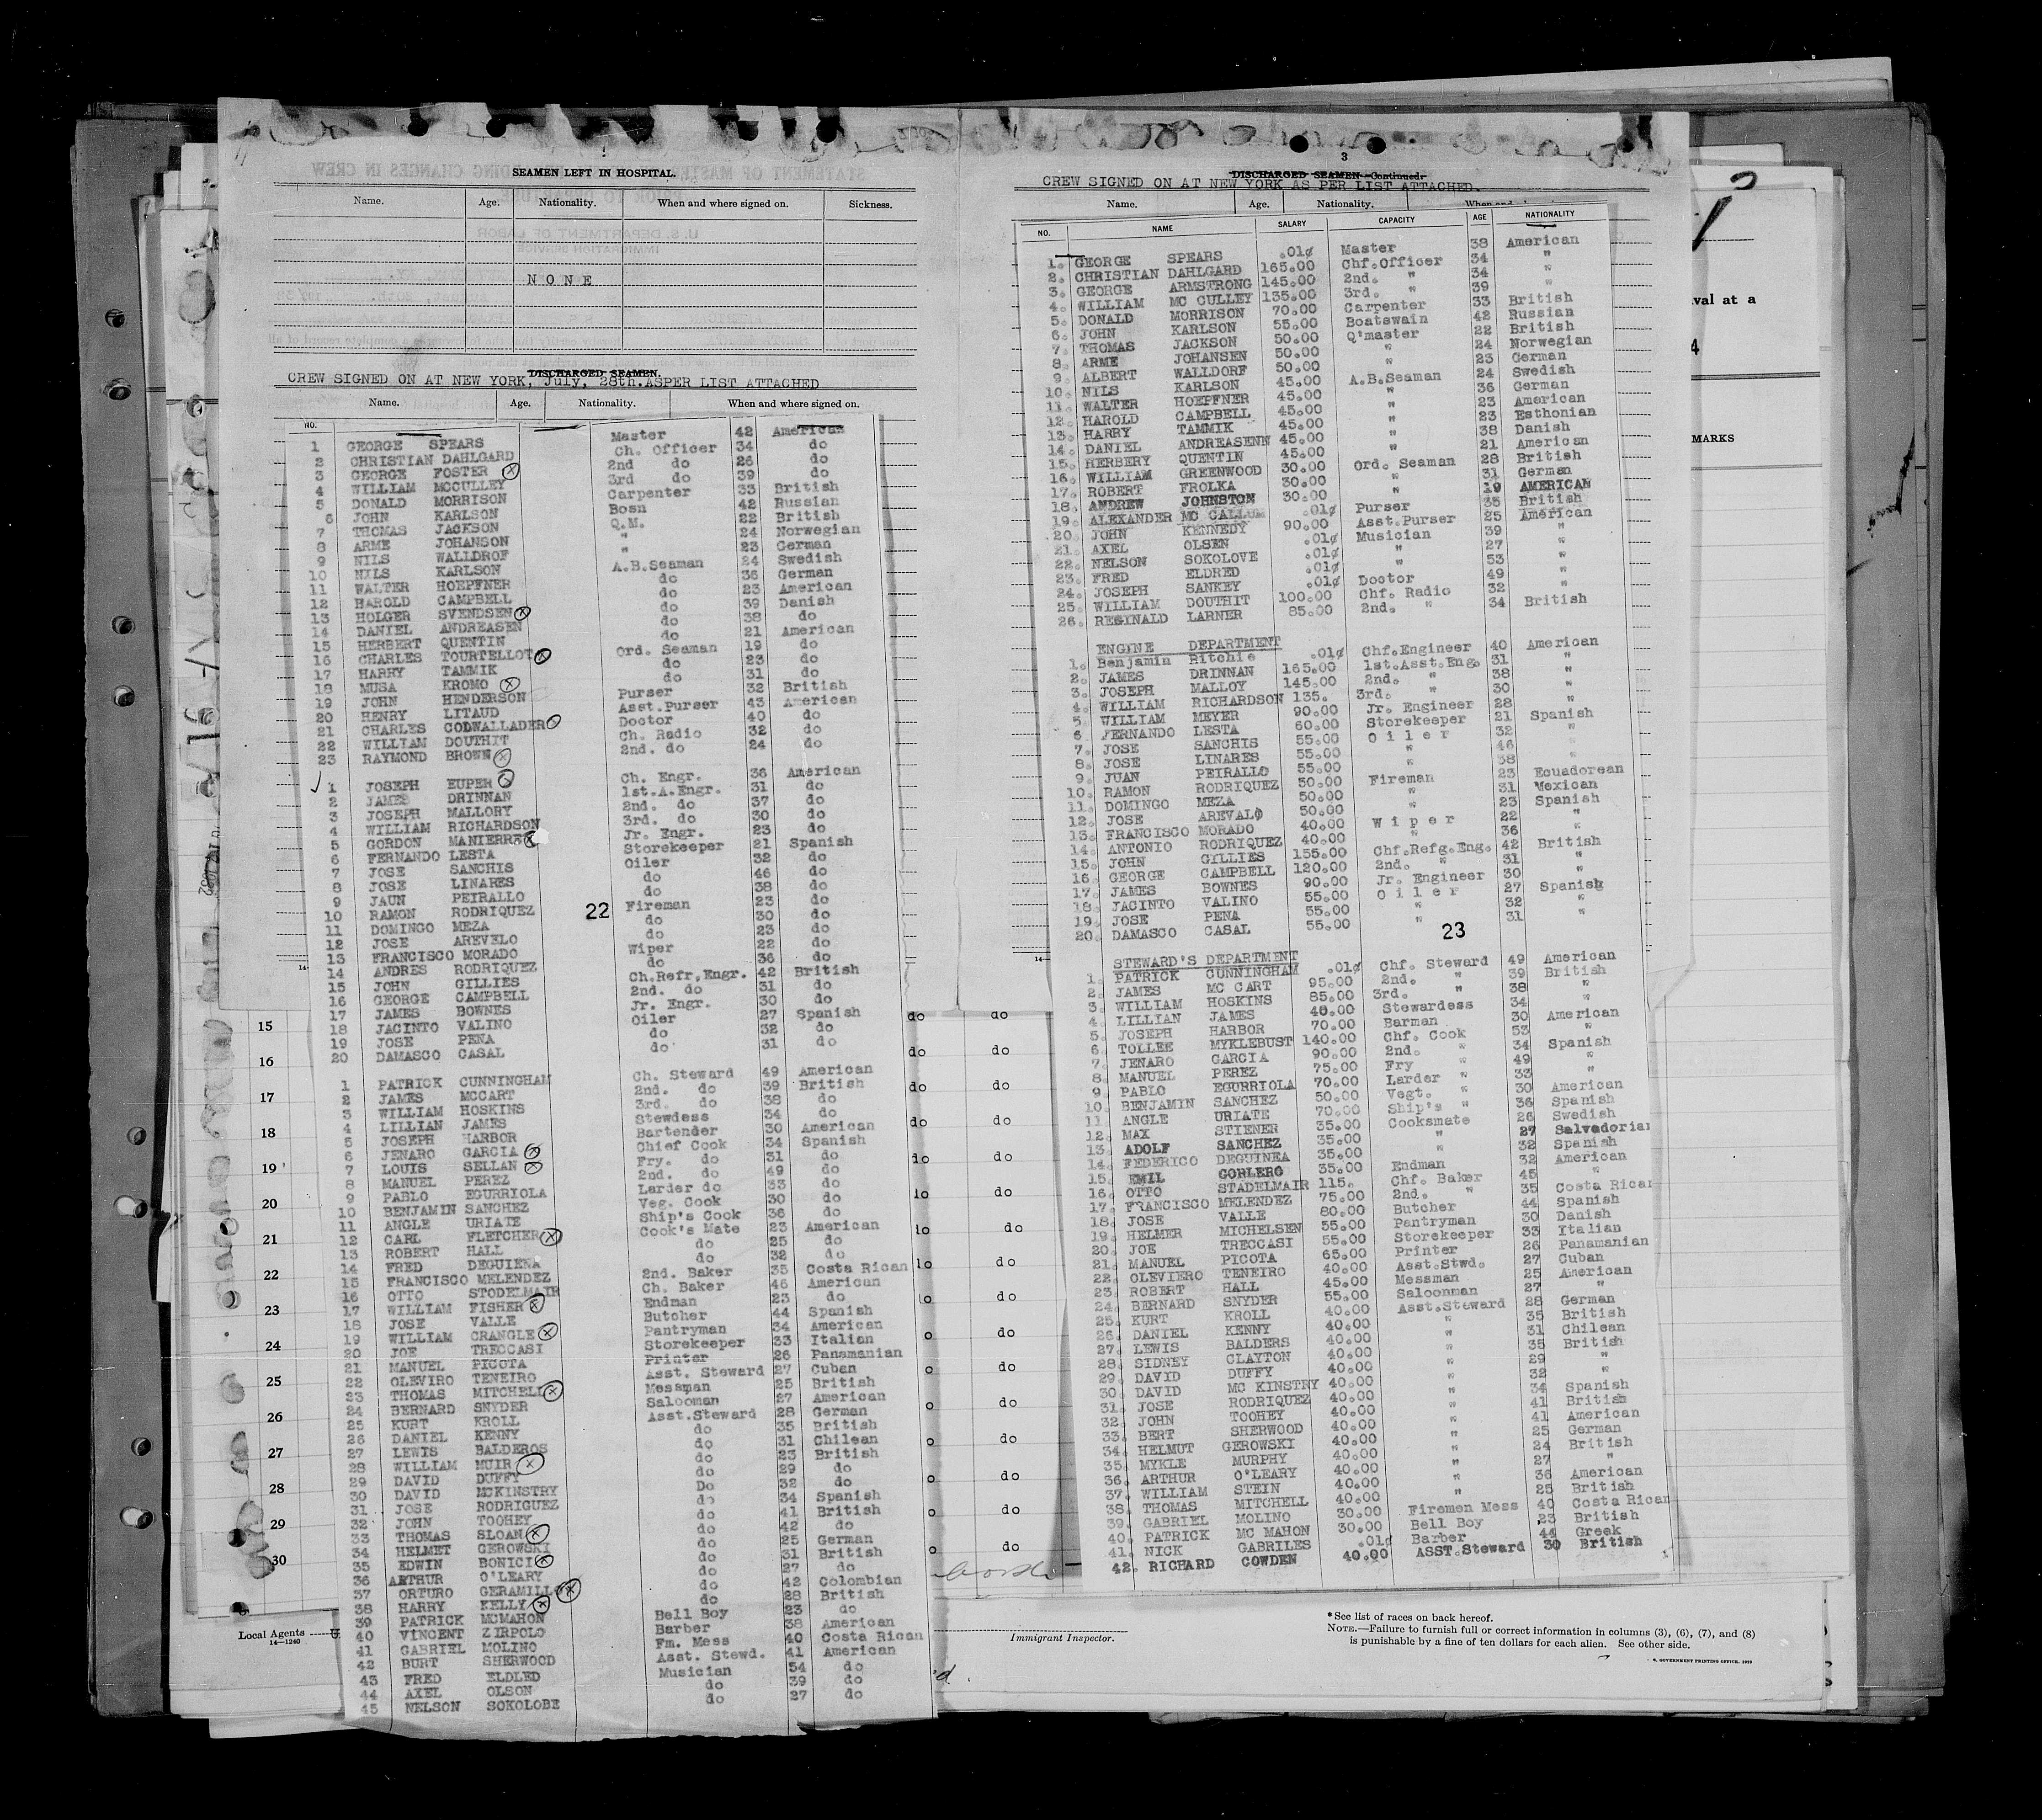 SEAMEN LEFT IN HOSPITAL.
Name. Age. Nationality. When and where signed on. Sickness.
NONE
DISCHARGED SEAMEN.
CREW SIGNED ON AT NEW YORK, July, 28th.ASPER LIST ATTACHED
Name. Age. Nationality. When and where signed on.
NO.
1 GEORGE SPEARS Master 42 American
2 CHRISTIAN DAHLGARD Ch. Officer 34 do
3 GEORGE FOSTER 2nd do 26 do
4 WILLIAM MCCULLEY 3rd do 39 do
5 DONALD MORRISON Carpenter 33 British
6 JOHN KARLSON Bosn 42 Russian
7 THOMAS JACKSON Q.M. 22 British
8 ARME JOHANSON " 24 Norwegian
9 NILS WALLDROF " 23 German
10 NILS KARLSON A.B.Seaman 24 Swedish
11 WALTER HOEPFNER do 36 German
12 HAROLD CAMPBELL do 23 American
13 HOLGER SVENDSEN do 39 Danish
14 DANIEL ANDREASEN do 38 do
15 HERBERT QUENTIN do 21 American
16 CHARLES TOURTELLOT Ord. Seaman 19 do
17 HARRY TAMMIK do 23 do
18 MUSA KROMO do 31 do
19 JOHN HENDERSON Purser 32 British
20 HENRY LITAUD Asst.Purser 43 American
21 CHARLES CODWALLADER Doctor 40 do
22 WILLIAM DOUTHIT Ch. Radio 32 do
23 RAYMOND BROWN 2nd. do 24 do
1 JOSEPH EUPER Ch. Engr. 36 American
2 JAMES DRINNAN 1st.A.Engr. 31 do
3 JOSEPH MALLORY 2nd. do 37 do
4 WILLIAM RICHARDSON 3rd. do 30 do
5 GORDON MANIERRE Jr. Engr. 23 do
6 FERNANDO LESTA Storekeeper 21 Spanish
7 JOSE SANCHIS Oiler 32 do
8 JOSE LINARES do 46 do
9 JAUN PEIRALLO do 38 do
10 RAMON RODRIQUEZ Fireman 23 do
22
11 DOMINGO MEZA do 30 do
12 JOSE AREVELO do 23 do
13 FRANCISCO MORADO Wiper 22 do
14 ANDRES RODRIQUEZ do 36 do
15 JOHN GILLIES Ch.Refr,Engr. 42 British
16 GEORGE CAMPBELL 2nd. do 31 do
17 JAMES BOWNES Jr. Engr. 30 do
18 JACINTO VALINO Oiler 27 Spanish
19 JOSE PENA do 32 do
20 DAMASCO CASAL do 31 do
1 PATRICK CUNNINGHAM Ch. Steward 49 American
2 JAMES MCCART 2nd. do 39 British
3 WILLIAM HOSKINS 3rd. do 38 do
4 LILLIAN JAMES Stewdess 34 do
5 JOSEPH HARBOR Bartender 30 American
6 JENARO GARCIA Chief Cook 34 Spanish
7 LOUIS SELLAN Fry. do 31 do
8 MANUEL PEREZ 2nd. do 49 do
9 PABLO EGURRIOLA Larder do 33 do
10 BENJAMIN SANCHEZ Veg. Cook 30 do
11 ANGLE URIATE Ship's Cook 36 do
12 CARL FLETCHER Cook's Mate 23 American
13 ROBERT HALL do 25 do
14 FRED DEGUIENA do 32 do
15 FRANCISCO MELENDEZ 2nd. Baker 35 Costa Rican
16 OTTO STODELMAIR Ch. Baker 46 American
17 WILLIAM FISHER Endman 23 do
18 JOSE VALLE Butcher 44 Spanish
19 WILLIAM CRANGLE Pantryman 34 American
20 JOE TRECCASI Storekeeper 33 Italian
21 MANUEL PICOTA Printer 26 Panamanian
22 OLEVIRO TENEIRO Asst. Steward 27 Cuban
23 THOMAS MITCHELL Messman 25 British
24 BERNARD SNYDER Salooman 27 American
25 KURT KROLL Asst.Steward 28 German
26 DANIEL KENNY do 35 British
27 LEWIS BALDEROS do 31 Chilean
28 WILLIAM MUIR do 23 British
29 DAVID DUFFY do 29 do
30 DAVID MCKINSTRY Do 32 do
31 JOSE RODRIGUEZ do 34 Spanish
32 JOHN TOOHEY do 41 British
33 THOMAS SLOAN do 42 do
34 HELMET GEROWSKI do 25 German
35 EDWIN BONICI do 31 British
36 ARTHUR O'LEARY do 27 do
37 ORTURO GERAMILLO do 42 Colombian
38 HARRY KELLY do 28 British
39 PATRICK MCMAHON Bell Boy 23 do
40 VINCENT ZIRPOLO Barber 38 American
41 GABRIEL MOLINO Fm. Mess 40 Costa Rican
42 BURT SHERWOOD Asst. Stewd. 41 American
43 FRED ELDLED Musician 54 do
44 AXEL OLSON do 39 do
45 NELSON SOKOLOBE do 27 do
3
DISCHARGED SEAMEN—Continued.
CREW SIGNED ON AT NEW YORK AS PER LIST ATTACHED.
Name. Age. Nationality. When and
NO. NAME SALARY CAPACITY AGE NATIONALITY
1. GEORGE SPEARS .01¢ Master 38 American
2. CHRISTIAN DAHLGARD 165.00 Chf.Officer 34 "
3. GEORGE ARMSTRONG 145.00 2nd. " 34 "
4. WILLIAM MC CULLEY 135.00 3rd. " 39 "
5. DONALD MORRISON 70.00 Carpenter 33 British
6. JOHN KARLSON 55.00 Boatswain 42 Russian
7. THOMAS JACKSON 50.00 Q'master 22 British
8. ARME JOHANSEN 50.00 " 24 Norwegian
9. ALBERT WALLDORF 50.00 " 23 German
10. NILS KARLSON 45.00 A.B.Seaman 24 Swedish
11. WALTER HOEPFNER 45.00 " 36 German
12. HAROLD CAMPBELL 45.00 " 23 American
13. HARRY TAMMIK 45.00 " 23 Esthonian
14. DANIEL ANDREASENN 45.00 " 38 Danish
15. HERBERY QUENTIN 45.00 " 21 American
16. WILLIAM GREENWOOD 30.00 Ord. Seaman 28 British
17. ROBERT FROLKA 30.00 " 31 German
18. ANDREW JOHNSTON 30.00 " 19 AMERICAN
19. ALEXANDER MC CALLUM .01¢ Purser 35 British
20. JOHN KENNEDY 90.00 Asst.Purser 25 American
21. AXEL OLSEN .01¢ Musician 39 "
22. NELSON SOKOLOVE .01¢ " 27 "
23. FRED ELDRED .01¢ " 53 "
24. JOSEPH SANKEY .01¢ Doctor 49 "
25. WILLIAM DOUTHIT 100.00 Chf. Radio 32 "
26. REGINALD LARNER 85.00 2nd. " 34 British
ENGINE DEPARTMENT
1. Benjamin Ritchie .01¢ Chf.Engineer 40 American
2. JAMES DRINNAN 165.00 1st.Asst.Eng. 31 "
3. JOSEPH MALLOY 145.00 2nd. " 38 "
4. WILLIAM RICHARDSON 135. 3rd. " 30 "
5. WILLIAM MEYER 90.00 Jr. Engineer 28 "
6. FERNANDO LESTA 60.00 Storekeeper 21 Spanish
7. JOSE SANCHIS 55.00 Oiler 32 "
8. JOSE LINARES 55.00 " 46 "
9. JUAN PEIRALLO 55.00 " 38 "
10. RAMON RODRIQUEZ 50.00 Fireman 23 Ecuadorean
11. DOMINGO MEZA 50.00 " 31 Mexican
12. JOSE AREVALO 50.00 " 23 Spanish
13. FRANCISCO MORADO 40.00 Wiper 22 "
14. ANTONIO RODRIQUEZ 40.00 " 36 "
15. JOHN GILLIES 155.00 Chf.Refg.Eng. 42 British
16. GEORGE CAMPBELL 120.00 2nd. " 31 "
17. JAMES BOWNES 90.00 Jr. Engineer 30 "
18. JACINTO VALINO 55.00 Oiler 27 Spanish
19. JOSE PENA 55.00 " 32 "
20. DAMASCO CASAL 55.00 " 31 "
23
STEWARD'S DEPARTMENT
1. PATRICK CUNNINGHAM .01¢ Chf. Steward 49 American
2. JAMES MC CART 95.00 2nd. " 39 British
3. WILLIAM HOSKINS 85.00 3rd. " 38 "
4. LILLIAN JAMES 48.00 Stewardess 34 "
5. JOSEPH HARBOR 70.00 Barman 30 American
6. TOLLEE MYKLEBUST 140.00 Chf. Cook 53 "
7. JENARO GARCIA 90.00 2nd. " 34 Spanish
8. MANUEL PEREZ 75.00 Fry " 49 "
9. PABLO EGURRIOLA 70.00 Larder " 33 "
10. BENJAMIN SANCHEZ 50.00 Vegt. " 30 American
11. ANGLE URIATE 70.00 Ship's " 36 Spanish
12. MAX STIENER 35.00 Cooksmate 26 Swedish
13. ADOLF SANCHEZ 35.00 " 27 Salvadorian
14. FEDERICO DEGUINEA 35.00 " 32 Spanish
15. EMIL GORLERO 35.00 Endman 32 American
16. OTTO STADELMAIR 115. Chf. Baker 45 "
17. FRANCISCO MELENDEZ 75.00 2nd. " 35 Costa Rican
18. JOSE VALLE 80.00 Butcher 44 Spanish
19. HELMER MICHELSEN 55.00 Pantryman 30 Danish
20. JOE TRECCASI 55.00 Storekeeper 33 Italian
21. MANUEL PICOTA 65.00 Printer 26 Panamanian
22. OLEVIERO TENEIRO 40.00 Asst.Stwd. 27 Cuban
23. ROBERT HALL 45.00 Messman 25 American
24. BERNARD SNYDER 55.00 Saloonman 27 "
25. KURT KROLL 40.00 Asst.Steward 28 German
26. DANIEL KENNY 40.00 " 35 British
27. LEWIS BALDERS 40.00 " 31 Chilean
28. SIDNEY CLAYTON 40.00 " 35 British
29. DAVID DUFFY 40.00 " 29 "
30. DAVID MC KINSTRY 40.00 " 32 "
31. JOSE RODRIQUEZ 40.00 " 34 Spanish
32. JOHN TOOHEY 40.00 " 41 British
33. BERT SHERWOOD 40.00 " 41 American
34. HELMUT GEROWSKI 40.00 " 25 German
35. MYKLE MURPHY 40.00 " 24 British
36. ARTHUR O'LEARY 40.00 " 27 "
37. WILLIAM STEIN 40.00 " 36 American
38. THOMAS MITCHELL 40.00 " 25 British
39. GABRIEL MOLINO 30.00 Firemen Mess 40 Costa Rican
40. PATRICK MC MAHON 30.00 Bell Boy 23 British
41. NICK GABRILES .01¢ Barber 44 Greek
42. RICHARD COWDEN 40.00 ASST.Steward 30 British
val at a
4
MARKS
15 do do
16 do do
17 do do
18 do do
19 do do
20 do
21 do
22 do
23 do
24 do
25 do
26 do
27 do
28 do
29 do
30 do
Local Agents
14—1240
Immigrant Inspector.
*See list of races on back hereof.
NOTE.—Failure to furnish full or correct information in columns (3), (6), (7), and (8)
is punishable by a fine of ten dollars for each alien. See other side.
GOVERNMENT PRINTING OFFICE